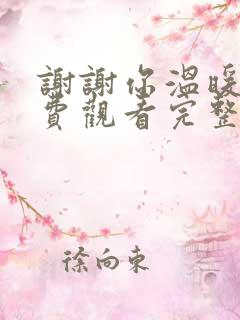 謝謝你溫暖
費觀看完整
徐向東